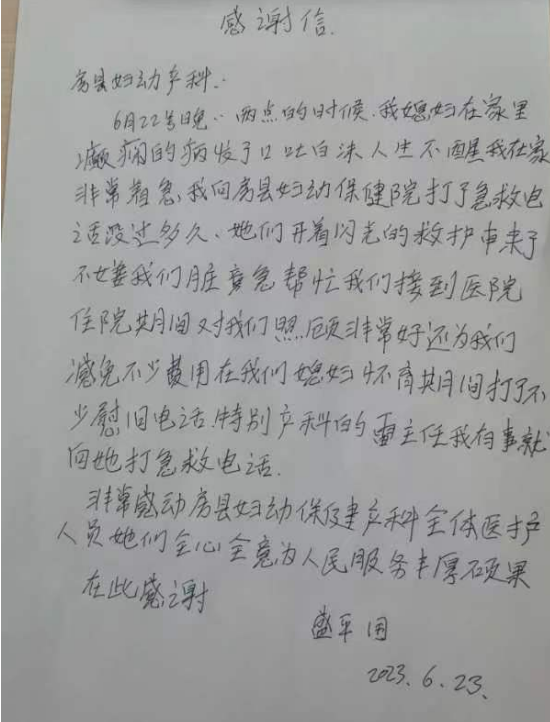 感谢信
房县妇幼产科:
6月22号晚..两点的时候.我媳妇在家里
癫痫的病发了口吐白沫人事不醒我在家
非常着急,我向房县妇幼保健院打了急救电
话没过多久、她们开着闪光的救护车来了
不嫌我们脏 帮忙我们接到医院
住院其间对我们照顾非常好还为我们
减免不少费用在我们媳妇怀育其间打了不
少慰旧电话.特别产科的 主任我有事就
向她打急救电话.
非常感动房县妇幼保健产科全体医护
人员她们全心全意为人民服务丰厚硕果
在此感谢
盛平国
2023.6.23.